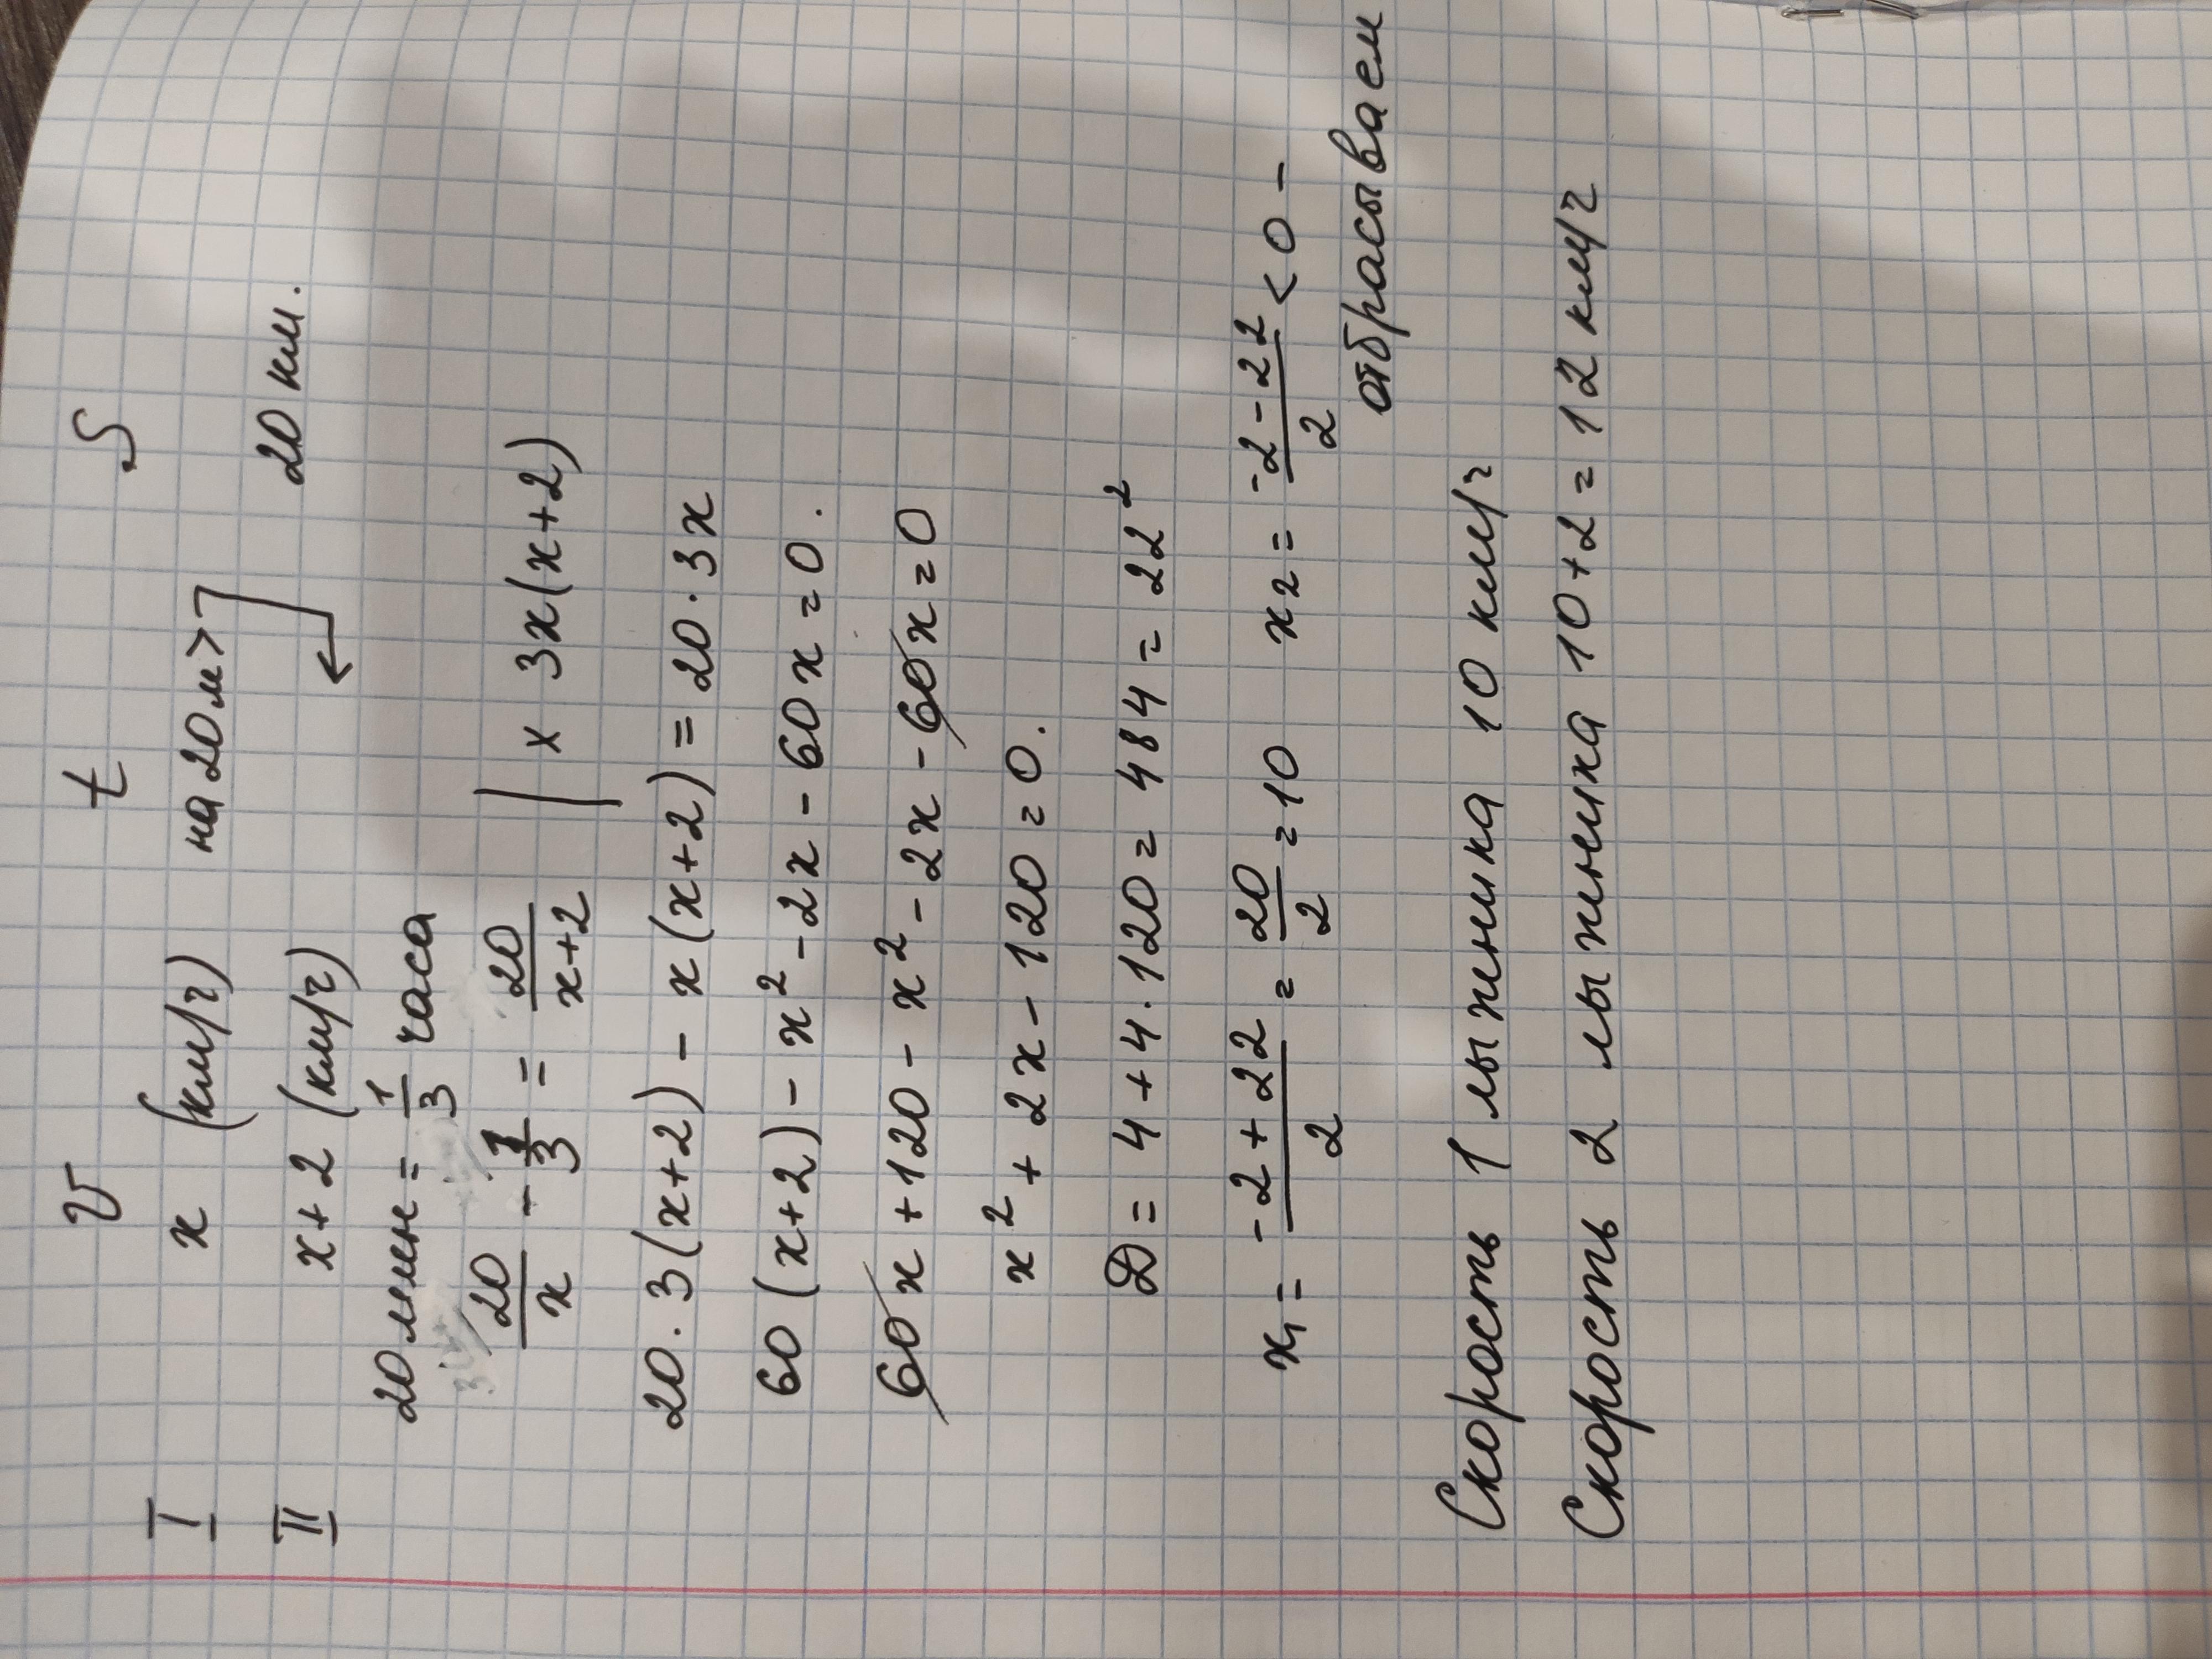 V t S
I x (км/ч) на 20м >
II x+2 (км/ч) 20 км.
20 мин = 1/3 часа
20/x - 1/3 = 20/x+2 | x 3x(x+2)
20·3(x+2) - x(x+2) = 20·3x
60(x+2) - x² - 2x - 60x = 0.
60x + 120 - x² - 2x - 60x = 0
x² + 2x - 120 = 0.
D = 4 + 4·120 = 484 = 22²
x₁ = -2+22/2 = 20/2 = 10 x₂ = -2-22/2 < 0 -
отбрасываем
Скорость 1 лыжника 10 км/ч
Скорость 2 лыжника 10+2 = 12 км/ч